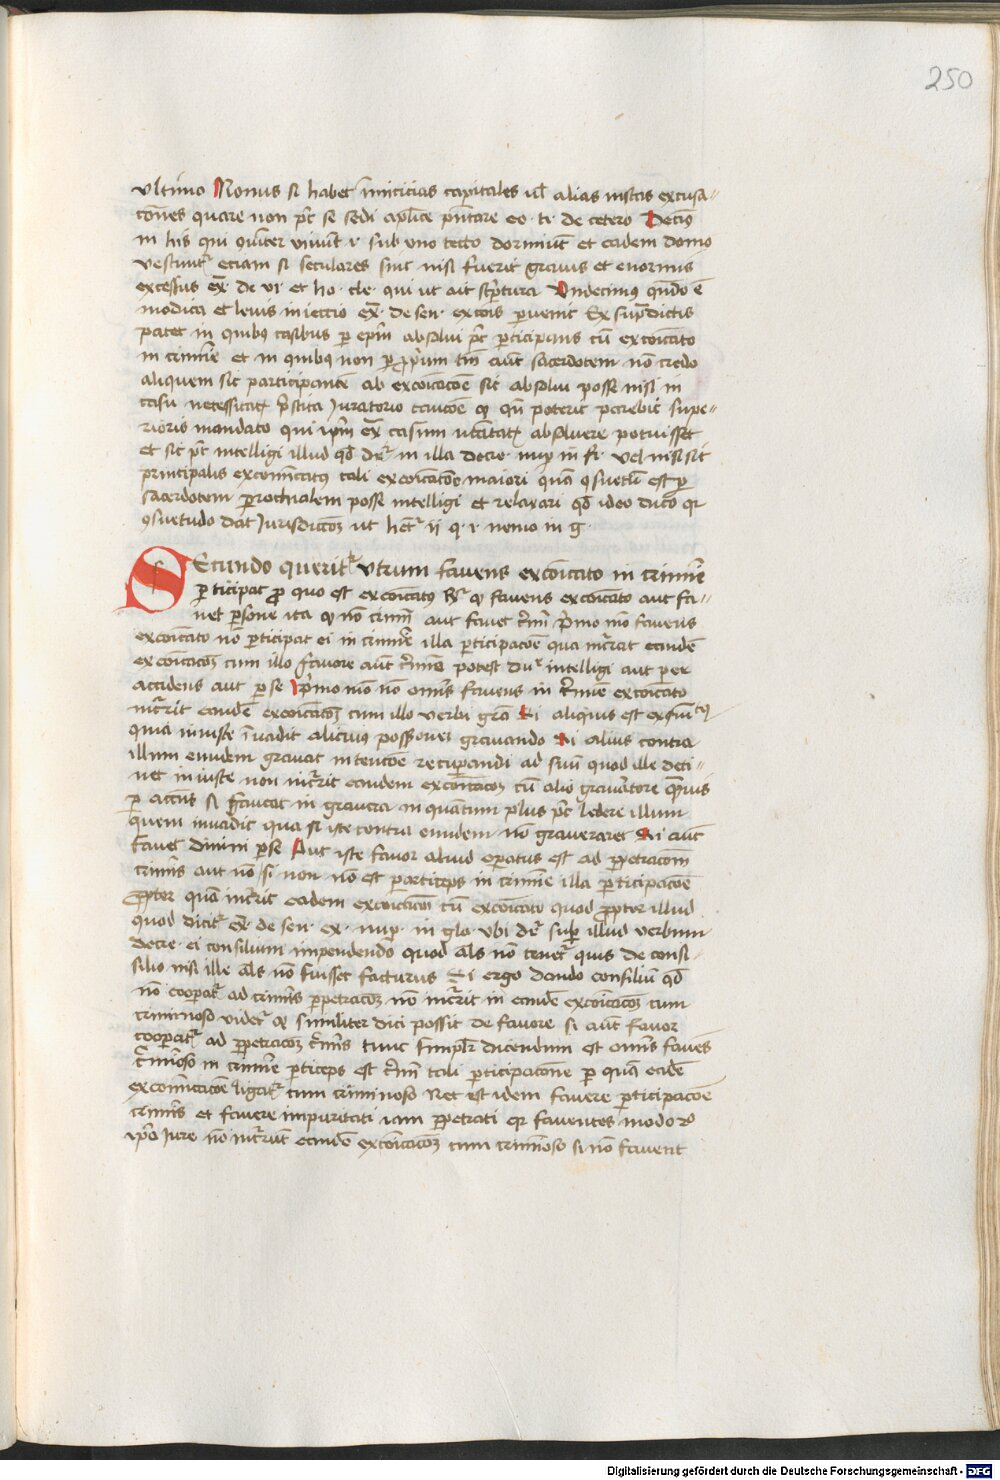 250
vltimo Nonus si habet īnimicicias capitales vl̄ alias iustas excusa-
tōnes quare non pt̄ se sedi aplīce pn̄tare eo. ti. de cetero Decim9
in his qui cōiter viuūt .i. sub vno tecto dormiūt et eadem domo
vestiunt᷑ eciam si seculares sint nisi fuerit grauis et enormis
excessus ex̄ de vi. et ho. cle. qui vt ait scriptura Vndecimus qn̄do ē
modica et leuis iniectio ex̄. de sen. excōis peruenit Ex supradictis
patet in quibus casibus per epm̄ absolui pt̄ participans cū excōicato
in crimīe et in quibus non per proprium tm̄ aut̄ sacerdotem nō credo
aliquem sic participantē ab excōicacōe sic absolui posse nisi in
casu necessitatis prestita Juratorio caucōe qd qn̄ poterit parebit supe-
rioris mandato qui ipm̄ ex̄ casum necitatis absoluere potuisset
et sic pt̄ intelligi illud qd̄ dr̄ in illa decre. nup in fi. vel nisi sit
principalis excōmunicatus tali excōicatōe maiori quā 9suetū est per
sacerdotem parrochialem posse intelligi et relaxari qd̄ ideo dico quia
9suetudo dat Jurisdictōem vt het᷑ ii q. i. nemo in g.
SEcundo querit᷑ Vtrum fauens excōicato in crimīe
participat pro quo est excōicatus R᷑ qd fauens excōicato aut fa-
uet persone ita qd nō crimī aut fauet crimī primo mō fauens
excōicato nō participat ei in crimīe illa participacōe qua incurrat eandē
excōicacōem cum illo fauore aut̄ crimīs potest dur intelligi aut per
accidens aut per se Primo mō nō omīs fauens in crimīe excōicato
incurrit eandē excōicacōem cum illo verbi gra Si aliquis est excōicatus
quia iniuste inuadit alicuius possessiones grauando Si alius contra
illum eundem grauat intencōe recuperandi ad suū quod ille deti-
net iniuste non incurrit eandem excōicacōem cū alio grauatore quāuis
per accn̄s si faueat in grauera in quantum plus pt̄ ledere illum
quem inuadit qua si iste contra eundem nō grauerares Si aut̄
fauet crimini per se Aut iste fauor aliud operatus est ad perpetracōem
crimīs aut nō si non nō est particeps in crimīe illa participacōe
propter quā incurrit eadem excōicacōem cū excōicato quod propter illud
quod dicit᷑ ex̄. de sen. ex. nup. in glo. vbi dr̄ super illud verbum
decre. ei consilium impendendo quod als̄ nō tenet᷑ quis de consi-
silio nisi ille als̄ nō fuisset facturus Si ergo dando consiliū qd̄
nō cooperat᷑ ad crimīs perpetracōem nō incurrit in eandē excōicacōem cum
criminoso videt᷑ qd similiter dici possit de fauore si aut̄ fauor
cooperatur ad perpetracōem crimīs tunc simplr̄ dicendum est omīs fauēs
crimīoso in crimīe particeps est crimī tali participatione per quā eadē
excōmunicacōe ligat᷑ cum criminoso Nec est idem fauere participacōe
crimīs et fauere impunitati iam perpetrati quia fauentes modo 2o
ipso Jure nō incurrūt eandē excōicacōem cum crimīoso si nō fauerit
Digitalisierung gefördert durch die Deutsche Forschungsgemeinschaft - DFG